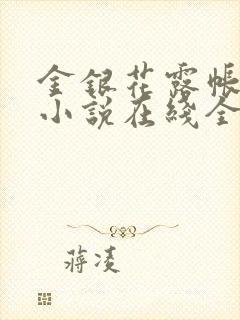 金银花露帐
小说在线全
蒋凌